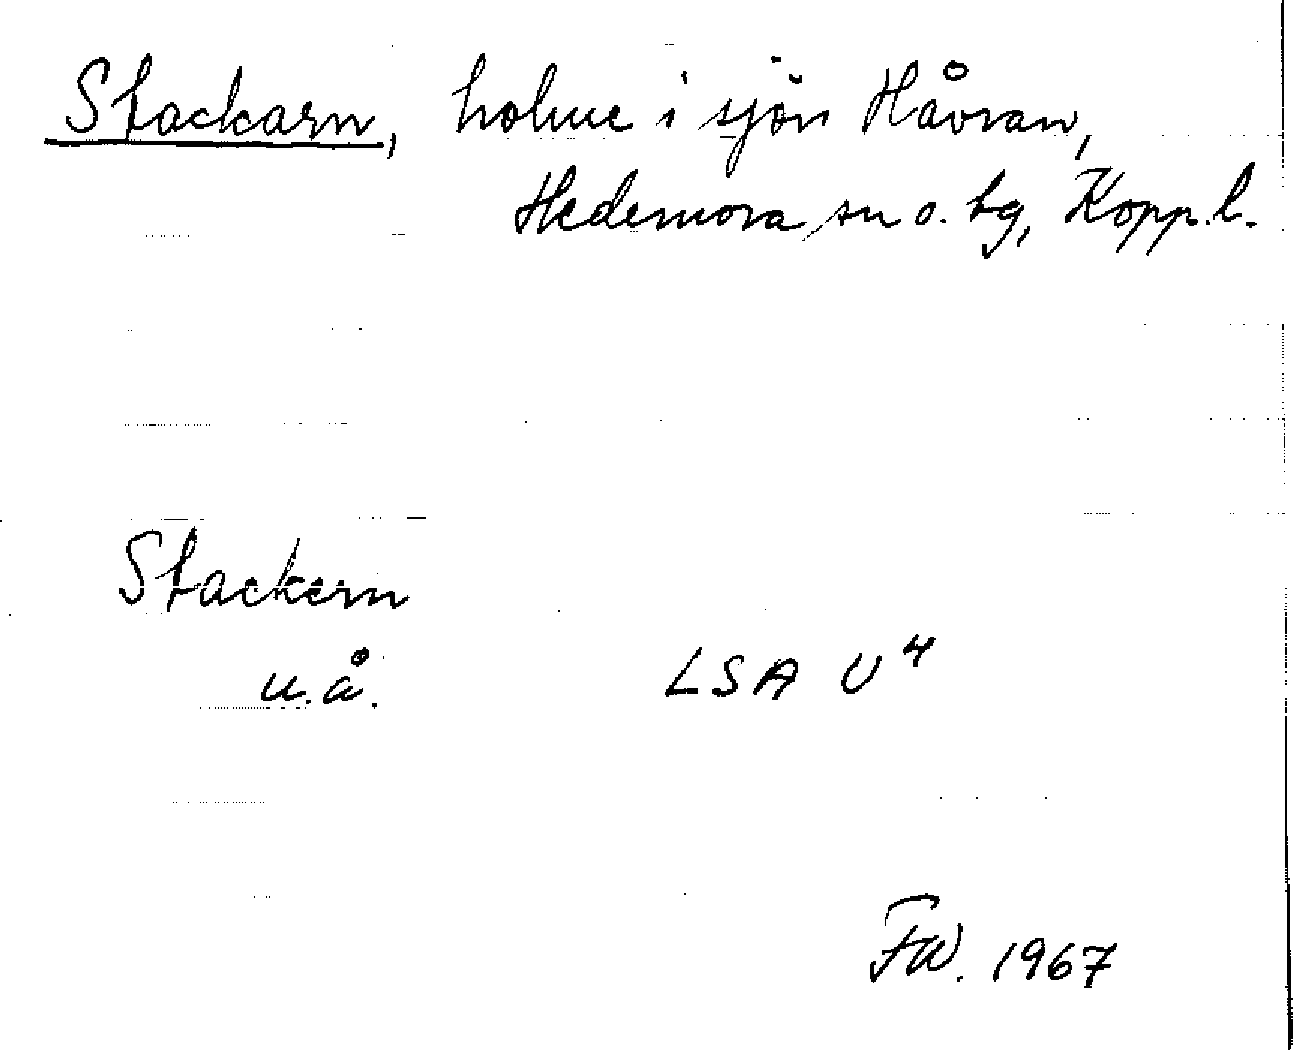 Stackarn, holme i sjön Håvran,
Hedemora sn o. bg, Kopp. l.
Stackern
u.å. LSA U⁴
FW. 1967